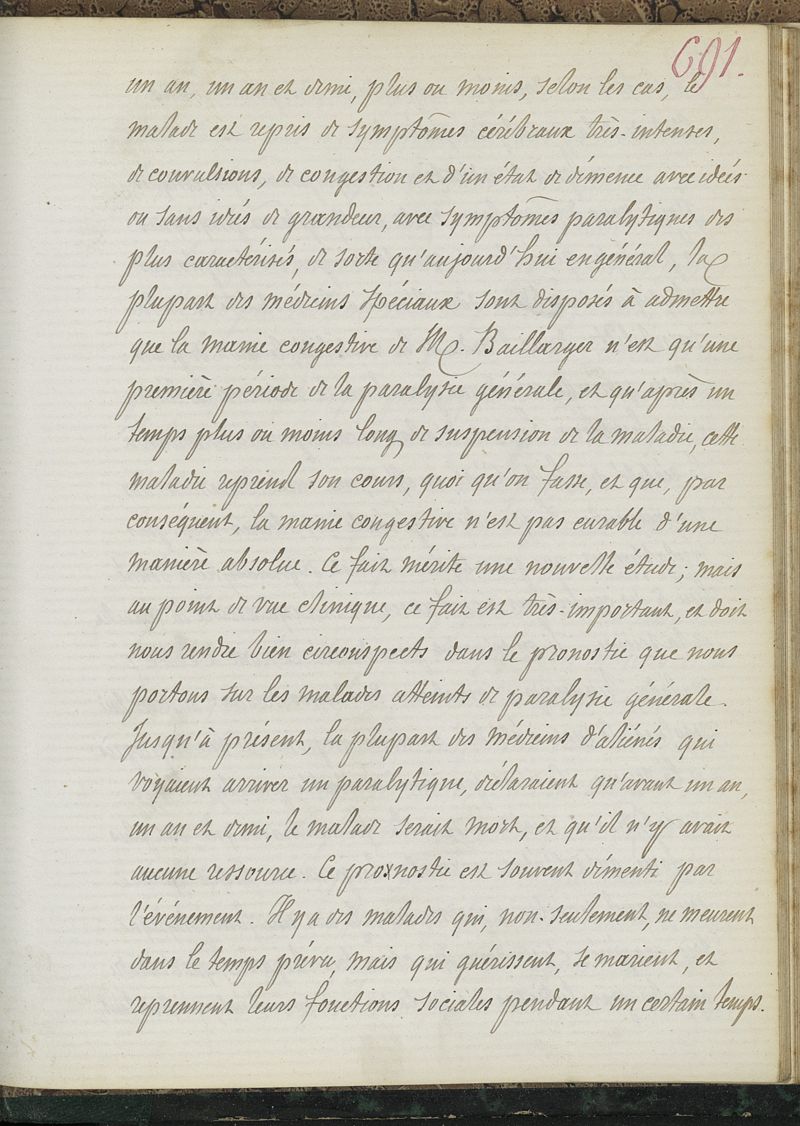 691.
un an, un an et demi, plus ou moins, selon les cas, le
malade est repris de symptômes cérébraux très-intenses,
de convulsions, de congestion et d'un état de démence avec idées
ou sans idées de grandeur, avec symptômes paralytiques des
plus caractérisés, de sorte qu'aujourd'hui en général, la
plupart des médecins spéciaux sont disposés à admettre
que la manie congestive de M. Baillarger n'est qu'une
première période de la paralysie générale, et qu'après un
temps plus ou moins long de suspension de la maladie, cette
maladie reprend son cours, quoi qu'on fasse, et que, par
conséquent, la manie congestive n'est pas curable d'une
manière absolue. Ce fait mérite une nouvelle étude; mais
au point de vue clinique, ce fait est très-important, et doit
nous rendre bien circonspects dans le pronostic que nous
portons sur les malades atteints de paralysie générale.
Jusqu'à présent, la plupart des médecins d'aliénés qui
voyaient arriver un paralytique, déclaraient qu'avant un an,
un an et demi, le malade serait mort, et qu'il n'y avait
aucune ressource. Ce pronostic est souvent démenti par
l'événement. Il y a des malades qui, non-seulement, ne meurent
dans le temps prévu, mais qui guérissent, se marient, et
reprennent leurs fonctions sociales pendant un certain temps.